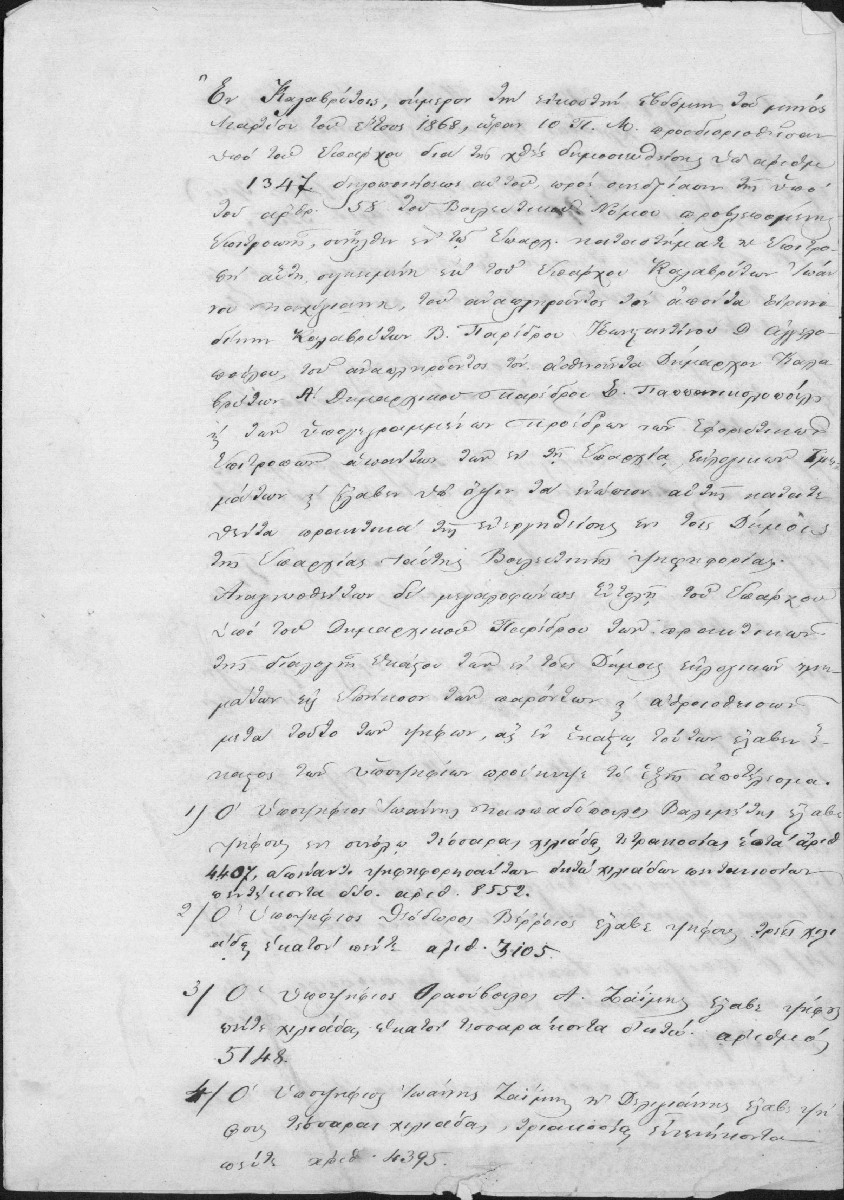 Ἐν Καλαβρύτοις, σήμερον τὴν εἰκοστὴν ἑβδόμην τοῦ μηνὸς
Μαρτίου τοῦ ἔτους 1868, ὥραν 10 Π. Μ. προσδιορισθεῖσαν
ὑπὸ τοῦ Ἐπάρχου διὰ τῆς χθὲς δημοσιευθείσης ὑπ' ἀριθμ
1347 δηλοποιήσεως αὐτοῦ, πρὸς συνεδρίασιν τῆς ὑπὸ
τοῦ ἄρθρ. 58 τοῦ Βουλευτικοῦ Νόμου προβλεπομένης
Ἐπιτροπῆς, συνῆλθεν ἐν τῷ Ἐπαρχ. καταστήματι ἡ Ἐπιτρο-
πὴ αὕτη, συγκειμένη ἐκ τοῦ Ἐπάρχου Καλαβρύτων Ἰωάν
νου, τοῦ ἀναπληροῦντος τὸν ἀπόντα εἰρηνο
δίκην Καλαβρύτων Β. Παρέδρου Κωνσταντίνου Δ Ἀγγελο-
πούλου, τοῦ ἀναπληροῦντος τὸν ἀσθενοῦντα Δήμαρχον Καλα
βρύτων Α' Δημαρχικοῦ Παρέδρου Σ. Παππανικολοπούλου
καὶ τῶν ὑπογεγραμμένων Προέδρων τῶν Ἐφορευτικῶν
Ἐπιτροπῶν ἁπάντων τῶν ἐν τῇ Ἐπαρχίᾳ ἐκλογικῶν Τμη-
μάτων καὶ ἔλαβεν ὑπ' ὄψιν τὰ ἐνώπιον αὐτῆς κατατε
θέντα πρακτικὰ τῆς ἐνεργηθείσης ἐν τοῖς Δήμοις
τῆς Ἐπαρχίας ταύτης Βουλευτικῆς ψηφοφορίας.
Ἀναγνωσθέντων δὲ μεγαλοφώνως ἐντολῇ τοῦ Ἐπάρχου
ὑπὸ τοῦ Δημαρχικοῦ Παρέδρου τῶν πρακτικῶν
τῆς διαλογῆς ἑκάστου τῶν ἐν τοῖς Δήμοις ἐκλογικῶν τμη-
μάτων εἰς ἐπήκοον τῶν παρόντων καὶ ἀθροισθεισῶν
μετὰ τοῦτο τῶν ψήφων, ἃς ἐν ἑκάστῳ τούτων ἔλαβεν ἕ-
καστος τῶν ὑποψηφίων προέκυψε τὸ ἑξῆς ἀποτέλεσμα.
1/ Ὁ Ὑποψήφιος Ἰωάννης Παπαδόπουλος Βαλιμίτης ἔλαβε
ψήφους ἐν συνόλῳ τέσσαρας χιλιάδας τετρακοσίας ἑπτὰ ἀριθ
4407, ἀπέναντι ψηφοφορησάντων ὀκτὼ χιλιάδων πεντακοσίων
πεντήκοντα δύο. ἀριθ. 8552.
2/ Ὁ Ὑποψήφιος Θεόδωρος ἔλαβε ψήφους τρεῖς χιλι
άδας ἑκατὸν πέντε ἀριθ. 3105.
3/ Ὁ Ὑποψήφιος Θρασύβουλος Α. Ζαΐμης ἔλαβε ψήφους
πέντε χιλιάδας ἑκατὸν τεσσαράκοντα ὀκτώ. ἀριθμὸς
5148.
4/ Ὁ Ὑποψήφιος Ἰωάννης Ζαΐμης ἢ Δεληγιάννης ἔλαβε ψή
φους τέσσαρας χιλιάδας, τριακοσίας ἐνενήκοντα
πέντε ἀριθ. 4395.